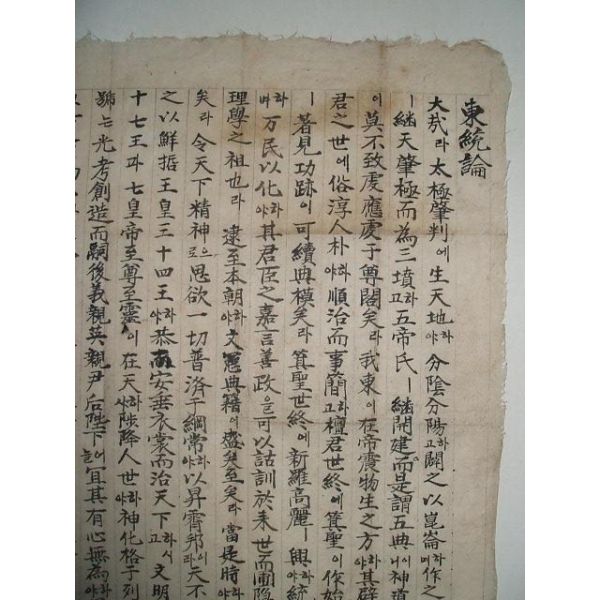 東統論
大哉라 太極肇判에 生天地하야 分陰分陽하고 闢之以崑崙하며 作之
ㅣ 繼天肇極而為三墳하고 五帝氏ㅣ 繼開建而是謂五典이니 神道
이 莫不致虔應虔于尊閣矣라 我東이 在帝震物生之方하야 其壁
君之世에 俗淳人朴하야 順治而事簡하고 檀君世終에 箕聖이 作始
ㅣ 著見功跡이 可續典模矣라 箕聖世終에 新羅高麗ㅣ 興하야 統
하며 万民以化하야 其君臣之嘉言善政으로 可以詁訓於来世而
理學之祖也라 逮至本朝하야 文憲典籍이 盛矣至矣라 當是時하야
矣라 令天下精神으로 思欲一切普済于綱常하야 以昇霄邦이라 天不
之以鮮哲王皇三十四王하야 恭而安垂衣裳而治天下하시고 文明
十七王과 七皇帝至尊至靈이 在天하사 陟降人世하야 神化格于列
號는 光考創造而嗣後義親英親尹后陛下 宜其有心無為하야